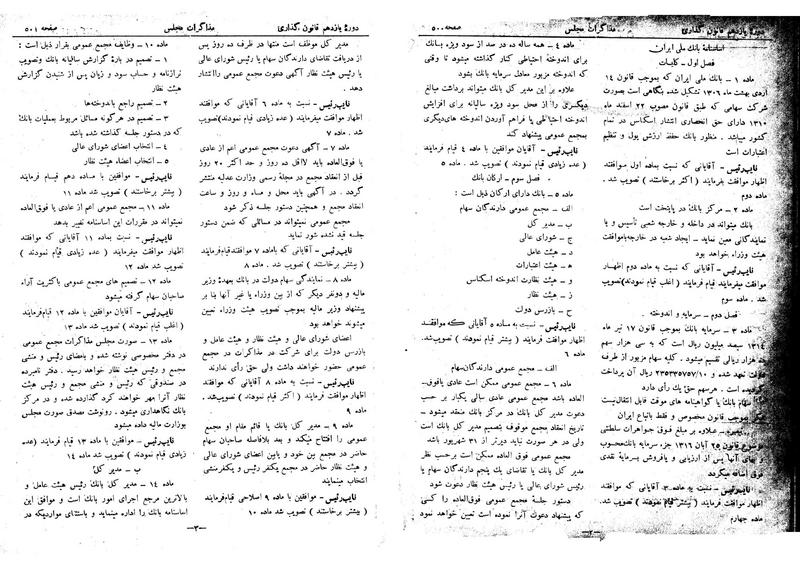 صفحه ۵۰۰
مذاکرات مجلس
دورهٔ یازدهم قانون گذاری
اساسنامهٔ بانک ملی ایران
فصل اول - کلیات
ماده ۱ - بانک ملی ایران که بموجب قانون ۱۴
اردی بهشت ماه ۱۳۰۶ تشکیل شده بنگاهی است بصورت
شرکت سهامی که طبق قانون مصوب ۲۲ اسفند ماه
۱۳۱۰ دارای حق انحصاری انتشار اسکناس در تمام
کشور میباشد . منظور بانک حفظ ارزش پول و تنظیم
اعتبارات است
نایب‌رئیس - آقایانی که نسبت بماده اول موافقند
اظهار موافقت بفرمایند ( اکثر برخاستند ) تصویب شد .
ماده دوم
ماده ۲ - مرکز بانک در پایتخت است
بانک میتواند در داخله و خارجه شعبی تأسیس و یا
نمایندگانی معین نماید - ایجاد شعبه در خارجه باموافقت
هیئت وزراء خواهد بود
نایب‌رئیس - آقایانی که نسبت به ماده دوم اظهار
موافقت میفرمایند قیام فرمایند ( اغلب قیام نمودند ) تصویب
شد . ماده سوم
فصل دوم - سرمایه و اندوخته
ماده ۳ - سرمایه بانک بموجب قانون ۱۷ تیر ماه
۱۳۱۴ سیصد میلیون ریال است که به سی هزار سهم
ده هزار ریالی تقسیم میشود . کلیه سهام مزبور از طرف
دولت تعهد شده و ۲۳۵۳۳۵۷۵۷/۱۰ ریال آن پرداخت
گردیده است . هر سهم حق یک رأی دارد
سهام بانک یا گواهینامه های موقت قابل انتقال نیست
مگر بموجب قانون مخصوص و فقط باتباع ایران
علاوه بر مبلغ فوق جواهرات سلطنتی
موضوع قانون ۲۵ آبان ۱۳۱۶ جزء سرمایه بانک محسوب
و بهای آنها پس از ارزیابی و یا فروش بسرمایهٔ نقدی
فوق اضافه میگردد
نایب‌رئیس - نسبت به ماده ۳ . موافقین قیام
فرمایند ( عده زیادی قیام نمودند ) تصویب شد .
ماده چهارم
ماده ۴ - همه ساله ده در صد از سود ویژه بانک
بعنوان اندوخته احتیاطی کنار گذاشته میشود تا وقتی
که اندوخته مزبور معادل سرمایه بانک بشود
علاوه بر این مدیر کل بانک میتواند برداشت مبالغ
دیگری را از محل سود ویژه سالیانه برای افزایش
اندوخته احتیاطی یا فراهم آوردن اندوخته های دیگری
بمجمع عمومی پیشنهاد کند
نایب‌رئیس - آقایان موافقین با ماده ۴ قیام فرمایند
( عده زیادی قیام نمودند ) تصویب شد . ماده ۵
فصل سوم - ارکان بانک
ماده ۵ - بانک دارای ارکان ذیل است :
الف - مجمع عمومی دارندگان سهام
ب - مدیر کل
ج - شورای عالی
د - هیئت عامل
ه - هیئت اعتبارات
و - هیئت نظارت اندوخته اسکناس
ز - هیئت نظار
ح - بازرس دولت
نایب‌رئیس - نسبت به ماده ۵ آقایانی که موافقند
اظهار موافقت فرمایند ( بیشتر برخاستند ) تصویب شد.
ماده ۶
الف - مجمع عمومی دارندگان سهام
ماده ۶ - مجمع عمومی ممکن است عادی یا فوق-
العاده باشد مجمع عمومی عادی سالی یکبار بر حسب
دعوت مدیر کل بانک در مرکز بانک منعقد میشود -
تاریخ انعقاد مجمع موقوف بتصمیم مدیر کل بانک است
ولی در هر صورت نباید دیرتر از ۳۱ شهریور باشد
مجمع عمومی فوق العاده ممکن است برحسب نظر
مدیر کل بانک یا تقاضای یک پنجم دارندگان سهام یا
رئیس شورای عالی یا رئیس هیئت نظار دعوت شود
دستور جلسه مجمع عمومی فوق‌العاده را کسی
که پیشنهاد دعوت آنرا نموده است تعیین خواهد نمود
—۲—
دورهٔ یازدهم قانون گذاری
مذاکرات مجلس
صفحه ۵۰۱
مدیر کل موظف است منتها در ظرف ده روز پس
از دریافت تقاضای دارندگان سهام یا رئیس شورای عالی
یا رئیس هیئت نظار آگهی دعوت مجمع عمومی را انتشار
دهد .
نایب‌رئیس - نسبت به ماده ۶ آقایانی که موافقند
اظهار موافقت فرمایند ( عده زیادی قیام نمودند) تصویب شد .
ماده ۷
ماده ۷ - آگهی دعوت مجمع عمومی اعم از عادی
یا فوق‌العاده باید لااقل ده روز و حد اکثر ۲۰ روز
قبل از انعقاد مجمع در مجلهٔ رسمی وزارت عدلیه منتشر
گردد . در آگهی باید محل و ماه و روز و ساعت
انعقاد مجمع و همچنین دستور جلسه ذکر شود
مجمع عمومی نمیتواند در مسائلی که ضمن دستور
جلسه قید نشده شور نماید
نایب‌رئیس - آقایانی که باماده ۷ موافقند قیام فرمایند
( بیشتر برخاستند ) تصویب شد . ماده ۸
ماده ۸ - نمایندگی سهام دولت در بانک بعهدهٔ وزیر
مالیه و دونفر دیگر که از بین وزراء یا غیر آنها بنا بر
پیشنهاد وزیر مالیه بموجب تصویب هیئت وزراء تعیین
میشوند خواهد بود
اعضای شورای عالی و هیئت نظار و هیئت عامل و
بازرس دولت برای شرکت در مذاکرات در مجمع
عمومی حضور خواهند داشت ولی حق رأی ندارند
نایب‌رئیس - نسبت بماده ۸ آقایانی که موافقند
اظهار موافقت فرمایند ( اکثر قیام نمودند) تصویب شد .
ماده ۹
ماده ۹ - مدیر کل بانک یا قائم مقام او مجمع
عمومی را افتتاح میکند و بعد بلافاصله صاحبان سهام
حاضر در مجمع بین خود و یابین اعضای شورای عالی
و هیئت نظار حاضر در مجمع یکنفر رئیس و یکنفر منشی
انتخاب مینمایند
نایب‌رئیس - موافقین با ماده ۹ اصلاحی قیام فرمایند
( بیشتر قیام نمودند ) تصویب شد ماده ۱۰
ماده ۱۰ - وظایف مجمع عمومی بقرار ذیل است :
۱ - تصمیم در بارهٔ گزارش سالیانه بانک وتصویب
ترازنامه و حساب سود و زیان پس از شنیدن گزارش
هیئت نظار
۲ - تصمیم راجع باندوخته‌ها
۳ - تصمیم در هرگونه مسائل مربوط بعملیات بانک
که در دستور جلسه گذاشته شده باشد
۴ - انتخاب اعضای شورای عالی
۵ - انتخاب اعضاء هیئت نظار
نایب‌رئیس - موافقین با ماده دهم قیام فرمایند
( بیشتر برخاستند ) تصویب شد ماده ۱۱
ماده ۱۱ - مجمع عمومی اعم از عادی یا فوق‌العاده
نمیتواند در مقررات این اساسنامه تغییر بدهد
نایب‌رئیس - نسبت بماده ۱۱ آقایانی که موافقند
اظهار موافقت میفرمایند ( عده زیادی قیام نمودند )
تصویب شد ماده ۱۲
ماده ۱۲ - تصمیم های مجمع عمومی باکثریت آراء
صاحبان سهام گرفته میشود
نایب‌رئیس - آقایان موافقین با ماده ۱۲ قیام فرمایند
( اغلب قیام نمودند ) تصویب شد ماده ۱۳
ماده ۱۳ - صورت مجلس مذاکرات مجمع عمومی
در دفتر مخصوصی نوشته شده و بامضای رئیس و منشی
مجمع و رئیس هیئت نظار خواهد رسید . دفتر نامبرده
در صندوقی که رئیس و منشی مجمع و رئیس هیئت
نظار آنرا مهر خواهند کرد گذارده شده و در مرکز
بانک نگاهداری میشود . رونوشت مصدق صورت مجلس
بوزارت مالیه داده میشود
نایب‌رئیس - موافقین با ماده ۱۳ قیام فرمایند (عده
زیادی قیام نمودند ) تصویب شد ماده ۱۴
ب - مدیر کل
ماده ۱۴ - مدیر کل بانک رئیس هیئت عامل و
بالاترین مرجع اجرای امور بانک است و موافق این
اساسنامه بانک را اداره مینماید و باستثنای مواردیکه در
—۳—